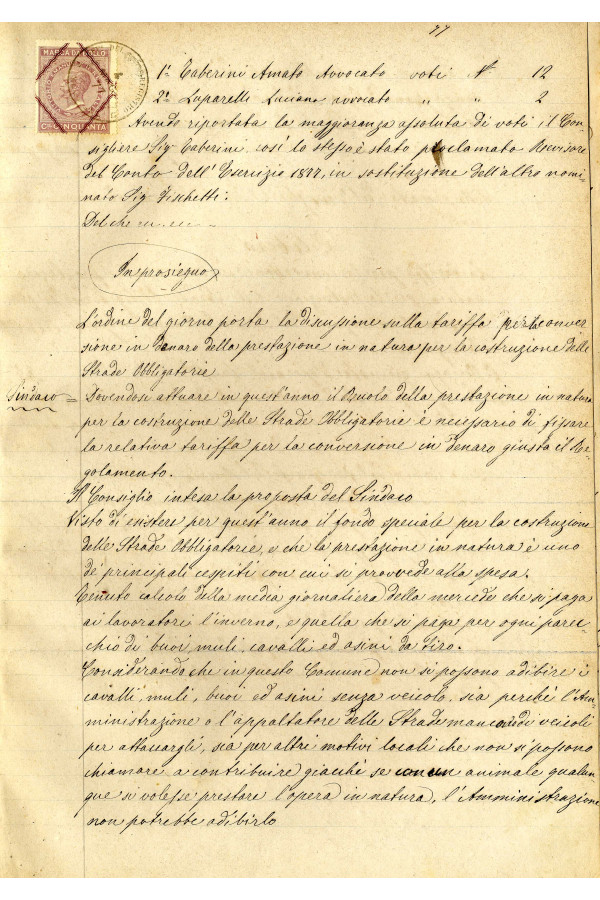 77
MARCA DA BOLLO
C. CINQUANTA
1º Taberini Amato Avvocato voti Nº 12
2º Luparelli Luciano avvocato „ „ 2
Avendo riportata la maggioranza assoluta di voti il Con-
sigliere Sigr Taberini, così lo stesso è stato proclamato Revisore
del Conto dell'Esercizio 1877, in sostituzione dell'altro nomi-
nato Sigr Fischetti.
Del che
In prosieguo
L'ordine del giorno porta la discussione sulla tariffa per la conver
sione in denaro della prestazione in natura per la costruzione delle
Strade Obbligatorie
Sindaco = Dovendosi attuare in quest'anno il Ruolo della prestazione in natura
per la costruzione delle Strade Obbligatorie è necessario di fissare
la relativa tariffa per la conversione in denaro giusta il Re-
golamento.
Il Consiglio intesa la proposta del Sindaco
Visto di esistere per quest'anno il fondo speciale per la costruzione
delle Strade Obbligatorie, e che la prestazione in natura è uno
de' principali cespiti con cui si provvede alla spesa.
Tenuto calcolo della media giornaliera della mercede che si paga
ai lavoratori l'inverno, e quella che si paga per ogni parec-
chio di buoi, muli, cavalli ed asini da tiro.
Considerando che in questo Comune non si possono adibire i
cavalli, muli, buoi ed asini senza veicolo, sia perchè l'Am-
ministrazione o l'appaltatore delle Strade manca di veicoli
per attaccargli, sia per altri motivi locali che non si possono
chiamare a contribuire giacchè se con un animale qualun
que si volesse prestare l'opera in natura, l'Amministrazione
non potrebbe adibirlo